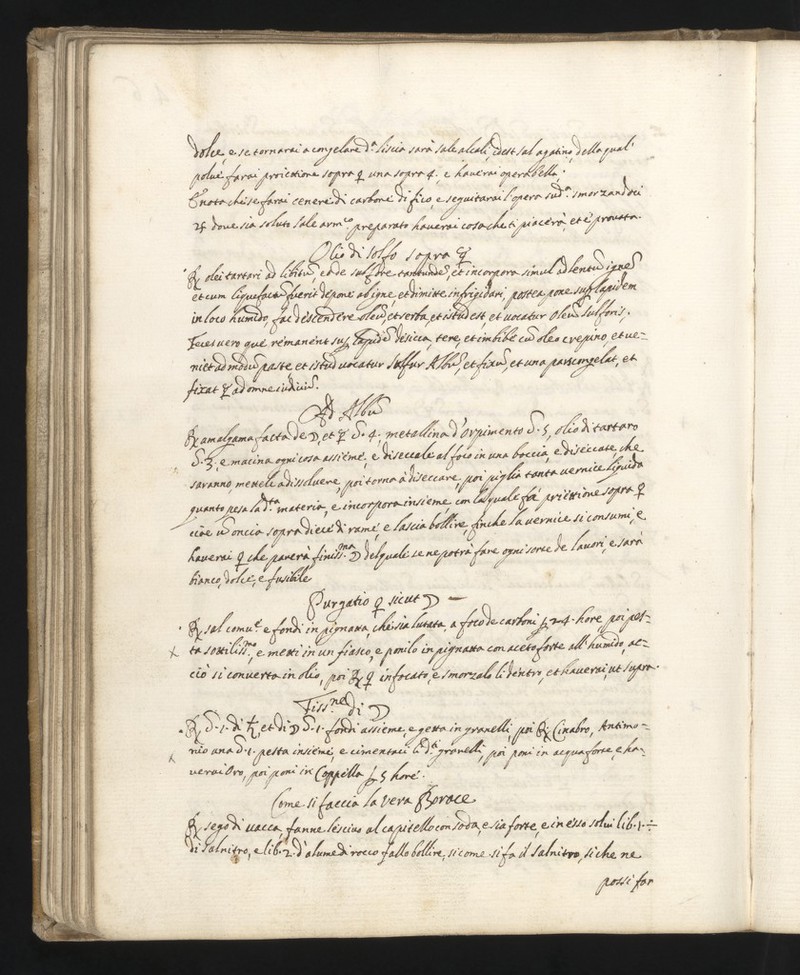 dolce, e se tornarai a congelare d.ᵃ liscia sarà sale alcali, idest sal agatino, della qual'
polue farai proiectione sopra ♀ una sopra 4. e haverai opera bella,
E nota che se farai cenere di carbone di fico, e seguitarai l'opera sud.ᵃ smorzandoci
♃ dove sia soluto sale arm.ᶜᵒ preparato haverai cosa che ti piacerà, et è provata.
Olio di solfo sopra ☿
℞ olei tartari ad libitũ, et de sulfure tantundẽ, et incorpora simul ad lentũ ignẽ
et cum liquefactũ fuerit depone ab igne, et dimitte infrigidari, postea pone sup lapidem
in loco humido, fac descendere oleũ, et serba, et istud est, et vocatur Oleũ Sulforis,
Feces vero quę remanent sup lapidẽ desicca, tere, et imbibe cũ oleo crepino, et ve=
niet ad modũ paste, et istud vocatur Sulfur Albũ, et fixũ, et una pars congelat, et
fixat ☿ ad omne iudiciũ.
Ad Albũ
℞ amalgama facta de ☽, et ☿ ℥. 4. metallina d'orpimento ℥. 5, olio di tartaro
℥. 3, e macina ogni cosa assieme, e diseccale al foco in una boccia, e diseccate che
saranno, mettele a dissolvere, poi torna à diseccare, poi piglia tanta vernice liquida
quanto pesa la d.ᵗᵃ materia, e incorpora insieme con la quale fà proiettione sopra ♀
cioè ũ oncia sopra diece di rame, e lascia bollire, finche la vernice si consumi, e
haverai ♀ che parerà finiss.ᵐᵃ ☽ del quale se ne potrà fare ogni sorte de lavori, e sarà
bianco, dolce, e fusibile
Purgatio ♀ sicut ☽ —
℞ sal comuẽ e fondi in pignatta, che sia lutata, a foco de carboni p 24. hore, poi pes-
ta sottiliss.ᵐᵒ, e metti in un fiasco, e ponilo in pignatta con aceto forte all'humido, ac-
ciò si converta in olio, poi ℞ ♀ infocato, e smorzalo li dentro, et haverai, ut supra.
Fiss.ⁿᵉ di ☽
℞ ℥. 1. di ♄, et di ☽ ℥. 1. fondi assieme, e getta in granelli, poi ℞ Cinabro, Antimo=
nio una ℥. 1. pesta insieme, e cimentaci li d.ᵗⁱ granelli, poi poni in acqua forte, e ha-
verai Oro, poi poni in Coppella p 5 hore.
Come si faccia la vera Borace
℞ sego di vacca, fanne lescivo al capitello con soda, e sia forte, e in esso solvi lib. 1. ÷
di Salnitro, e lib. 2. d'alume di rocco fallo bollire, si come si fa il Salnitro, si che ne
possi far